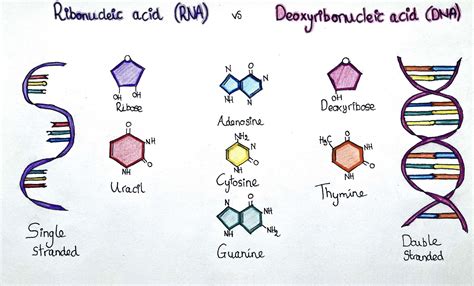 Ribonucleic acid (RNA) vs Deoxyribonucleic acid (DNA)
OH OH
Ribose
N
O
N
NH
N
Adenosine
OH
Deoxyribose
O
NH
O
NH
Uracil
NH₂
N
O
NH
Cytosine
O
H₃C
NH
O
NH
Thymine
O
N
NH
N
NH
NH₂
Guanine
Single
stranded
Double
stranded